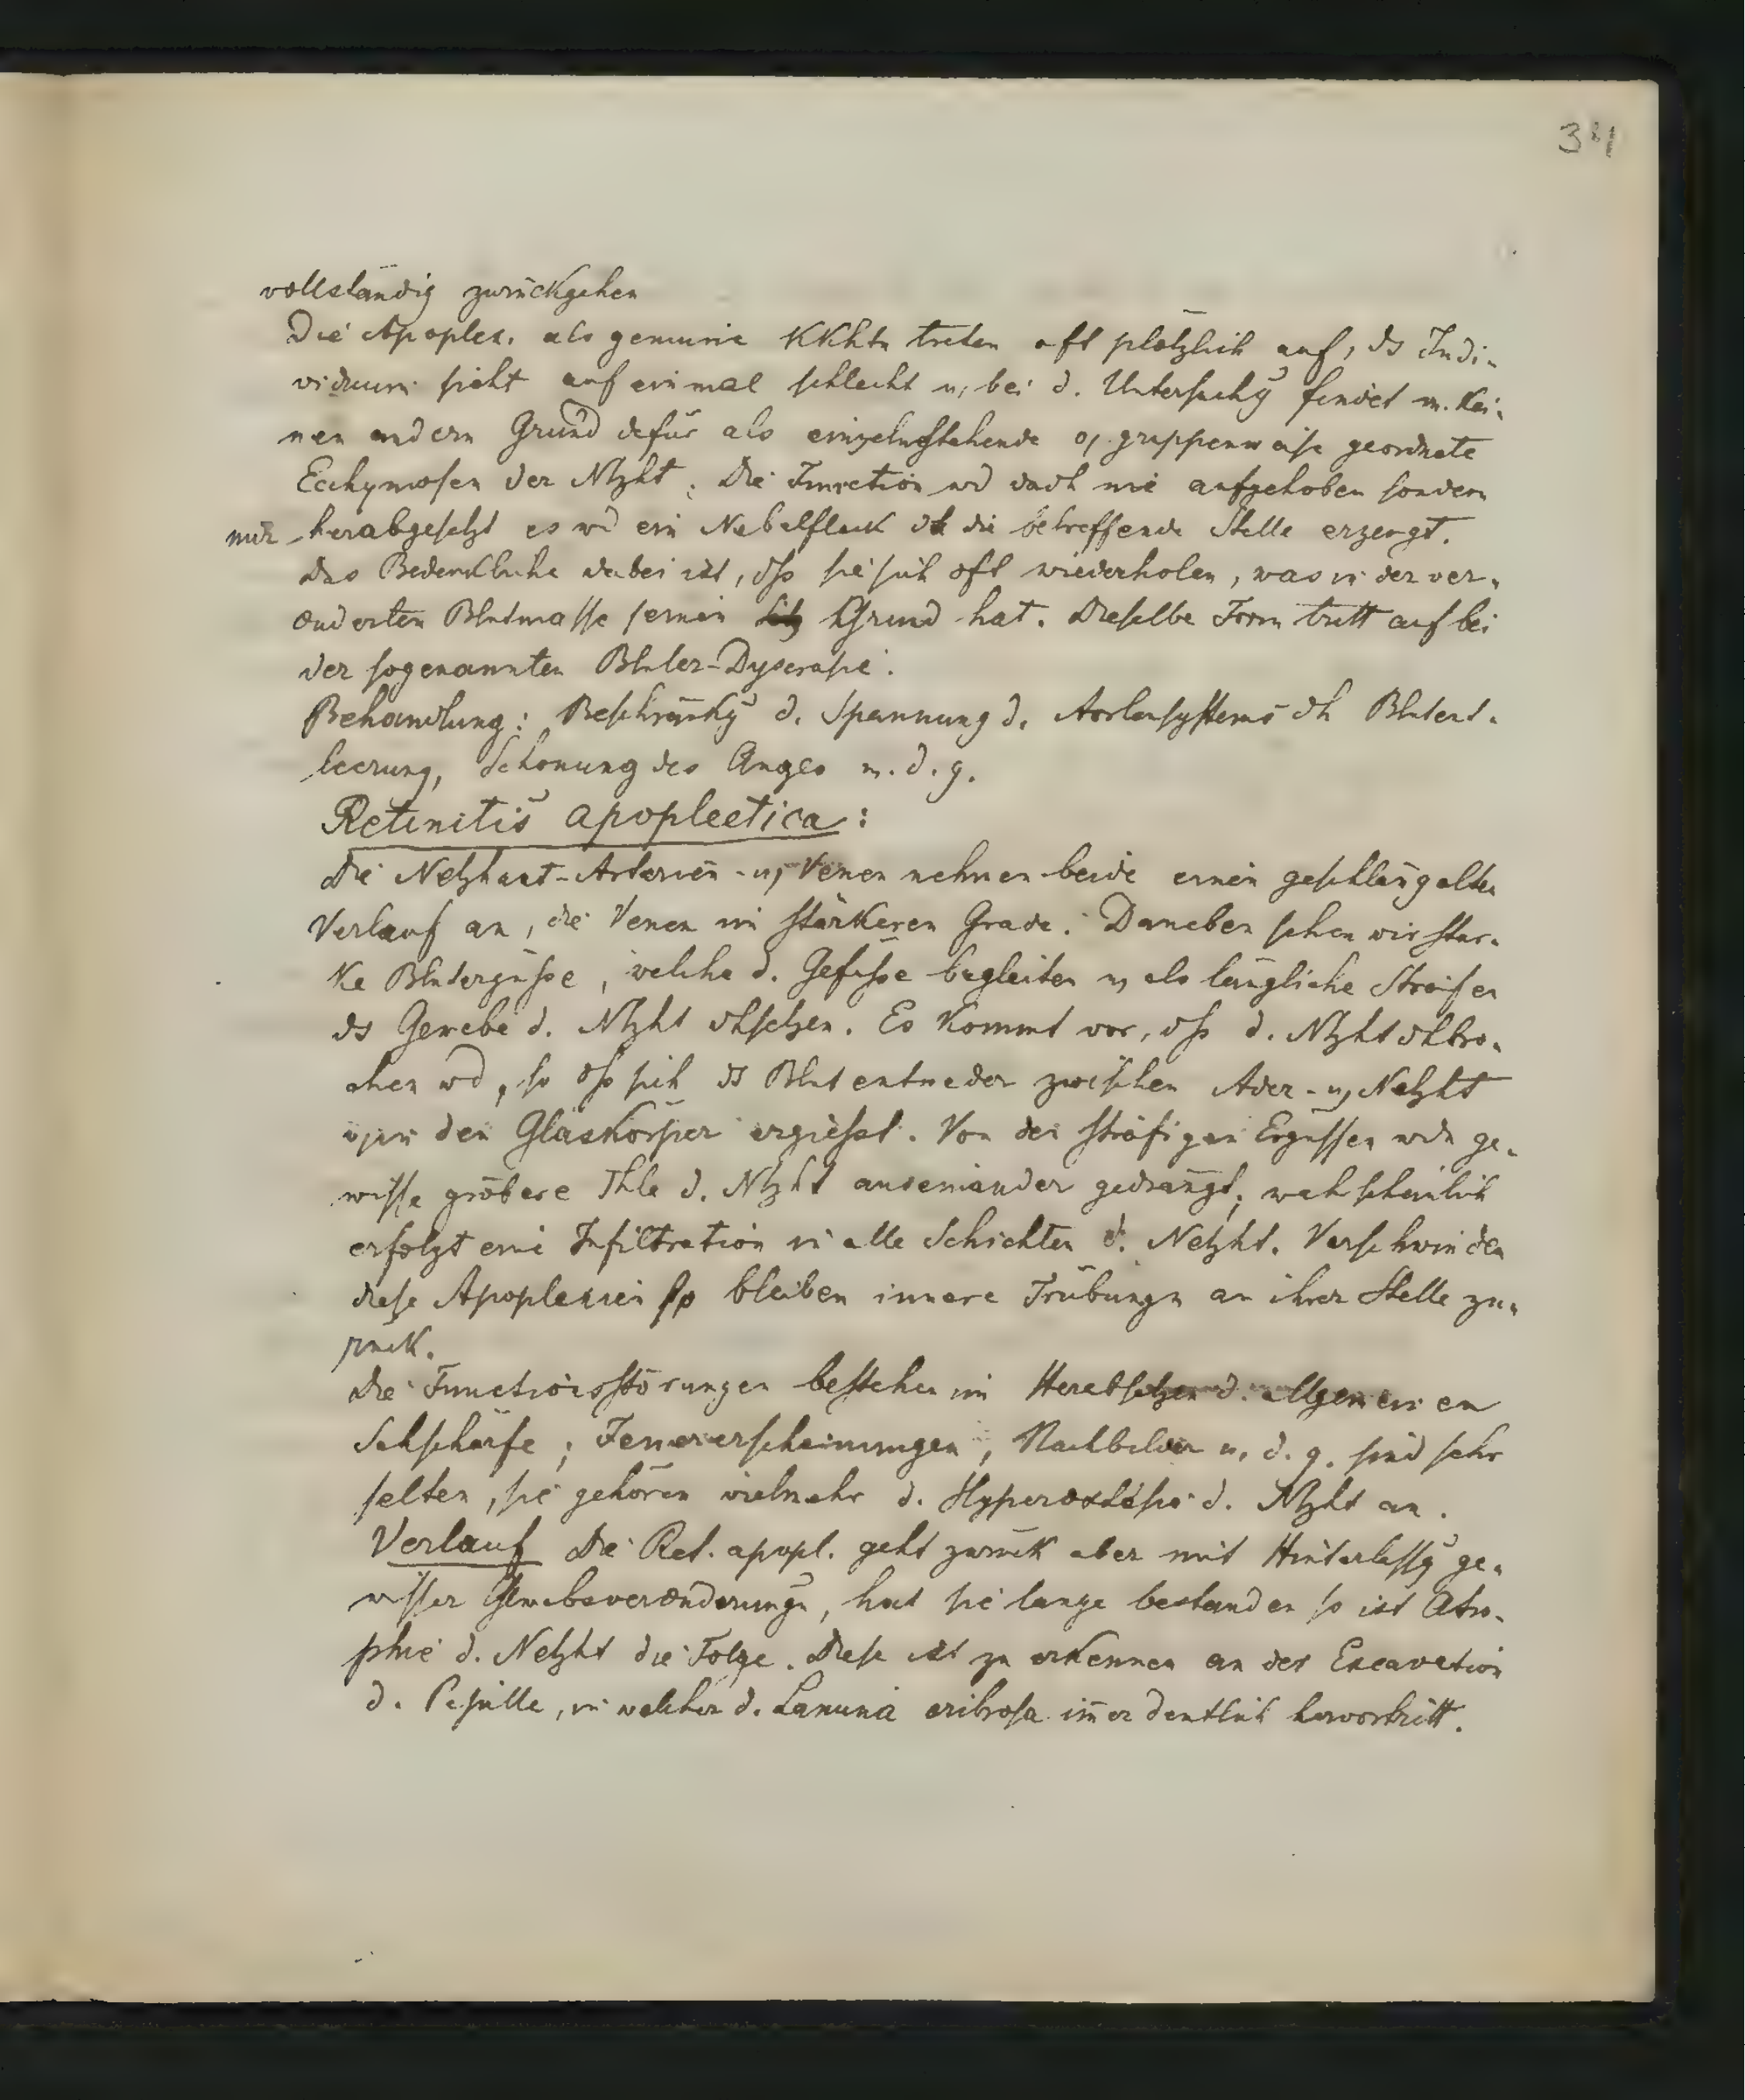 vollständig zurückgehen
Die Apoplex. als genuine KKhtn treten oft plötzlich auf, ds Indi-
viduum sieht auf einmal schlecht u, bei d. Untersuchg findet m. kei-
nen andern Grund dafür als einzelnstehende o, gruppenweise geordnete
Ecchymosen der Ntzht. Die Function wd doch nie aufgehoben sondern
nur herabgesetzt es wd ein Nebelfleck dh die betreffende Stelle erzeugt.
Das Bedenkliche dabei ist, dss sie sich oft wiederholen, was in der ver-
änderten Blutmasse seinen Grund hat. Dieselbe Form tritt auf bei
der sogenannten Bluter-Dyscrasie.
Behandlung: Beschränkg d. Spannung d. Aortensystems dh Blutent-
leerung, Schonung des Auges u. d. g.
Retinitis apoplectica:
Die Netzhaut-Arterien- u, Venen nehmen beide einen geschlängelten
Verlauf an, die Venen im stärkeren Grade. Daneben sehen wir star-
ke Blutergüsse, welche d. Gefässe begleiten u, als längliche Streifen
ds Gewebe d. Ntzht dhsetzen. Es kommt vor, dss d. Ntzht dhbro-
chen wd, so dss sich ds Blut entweder zwischen Ader- u, Netzht
o, in den Glaskörper ergiesst. Von den sträfigen Ergüssen wdn ge-
wisse gröbere Thle d. Ntzht auseinander gedrängt, wahscheinlich
erfolgt eine Infiltration in alle Schichten d. Netzht. Verschwinden
diese Apoplexien so bleiben innere Trübungn an ihrer Stelle zu-
rück.
Die Functionsstörungen bestehen im Herabsetzen d. allgemeinen
Sehschärfe, Feuererscheinungen, Nachbilder u. d. g. sind sehr
selten, sie gehören vielmehr d. Hyperästesie d. Ntzht an.
Verlauf Die Ret. apopl. geht zurück aber mit Hinterlassg ge-
wisser Gewebsveränderungn, hat sie lange bestanden so ist Atro-
phie d. Netzht die Folge. Diese ist zu erkennen an der Excavation
d. Papille, in welcher d. Lamina cribrosa im̄er deutlich hervortritt.